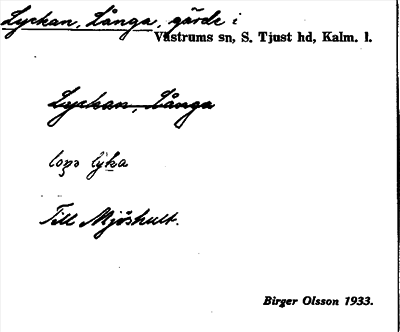 Lyckan, Långa, gärde i
Västrums sn, S. Tjust hd, Kalm. l.
Lyckan, Långa
loŋə lyka
Till Mjöshult.
Birger Olsson 1933.